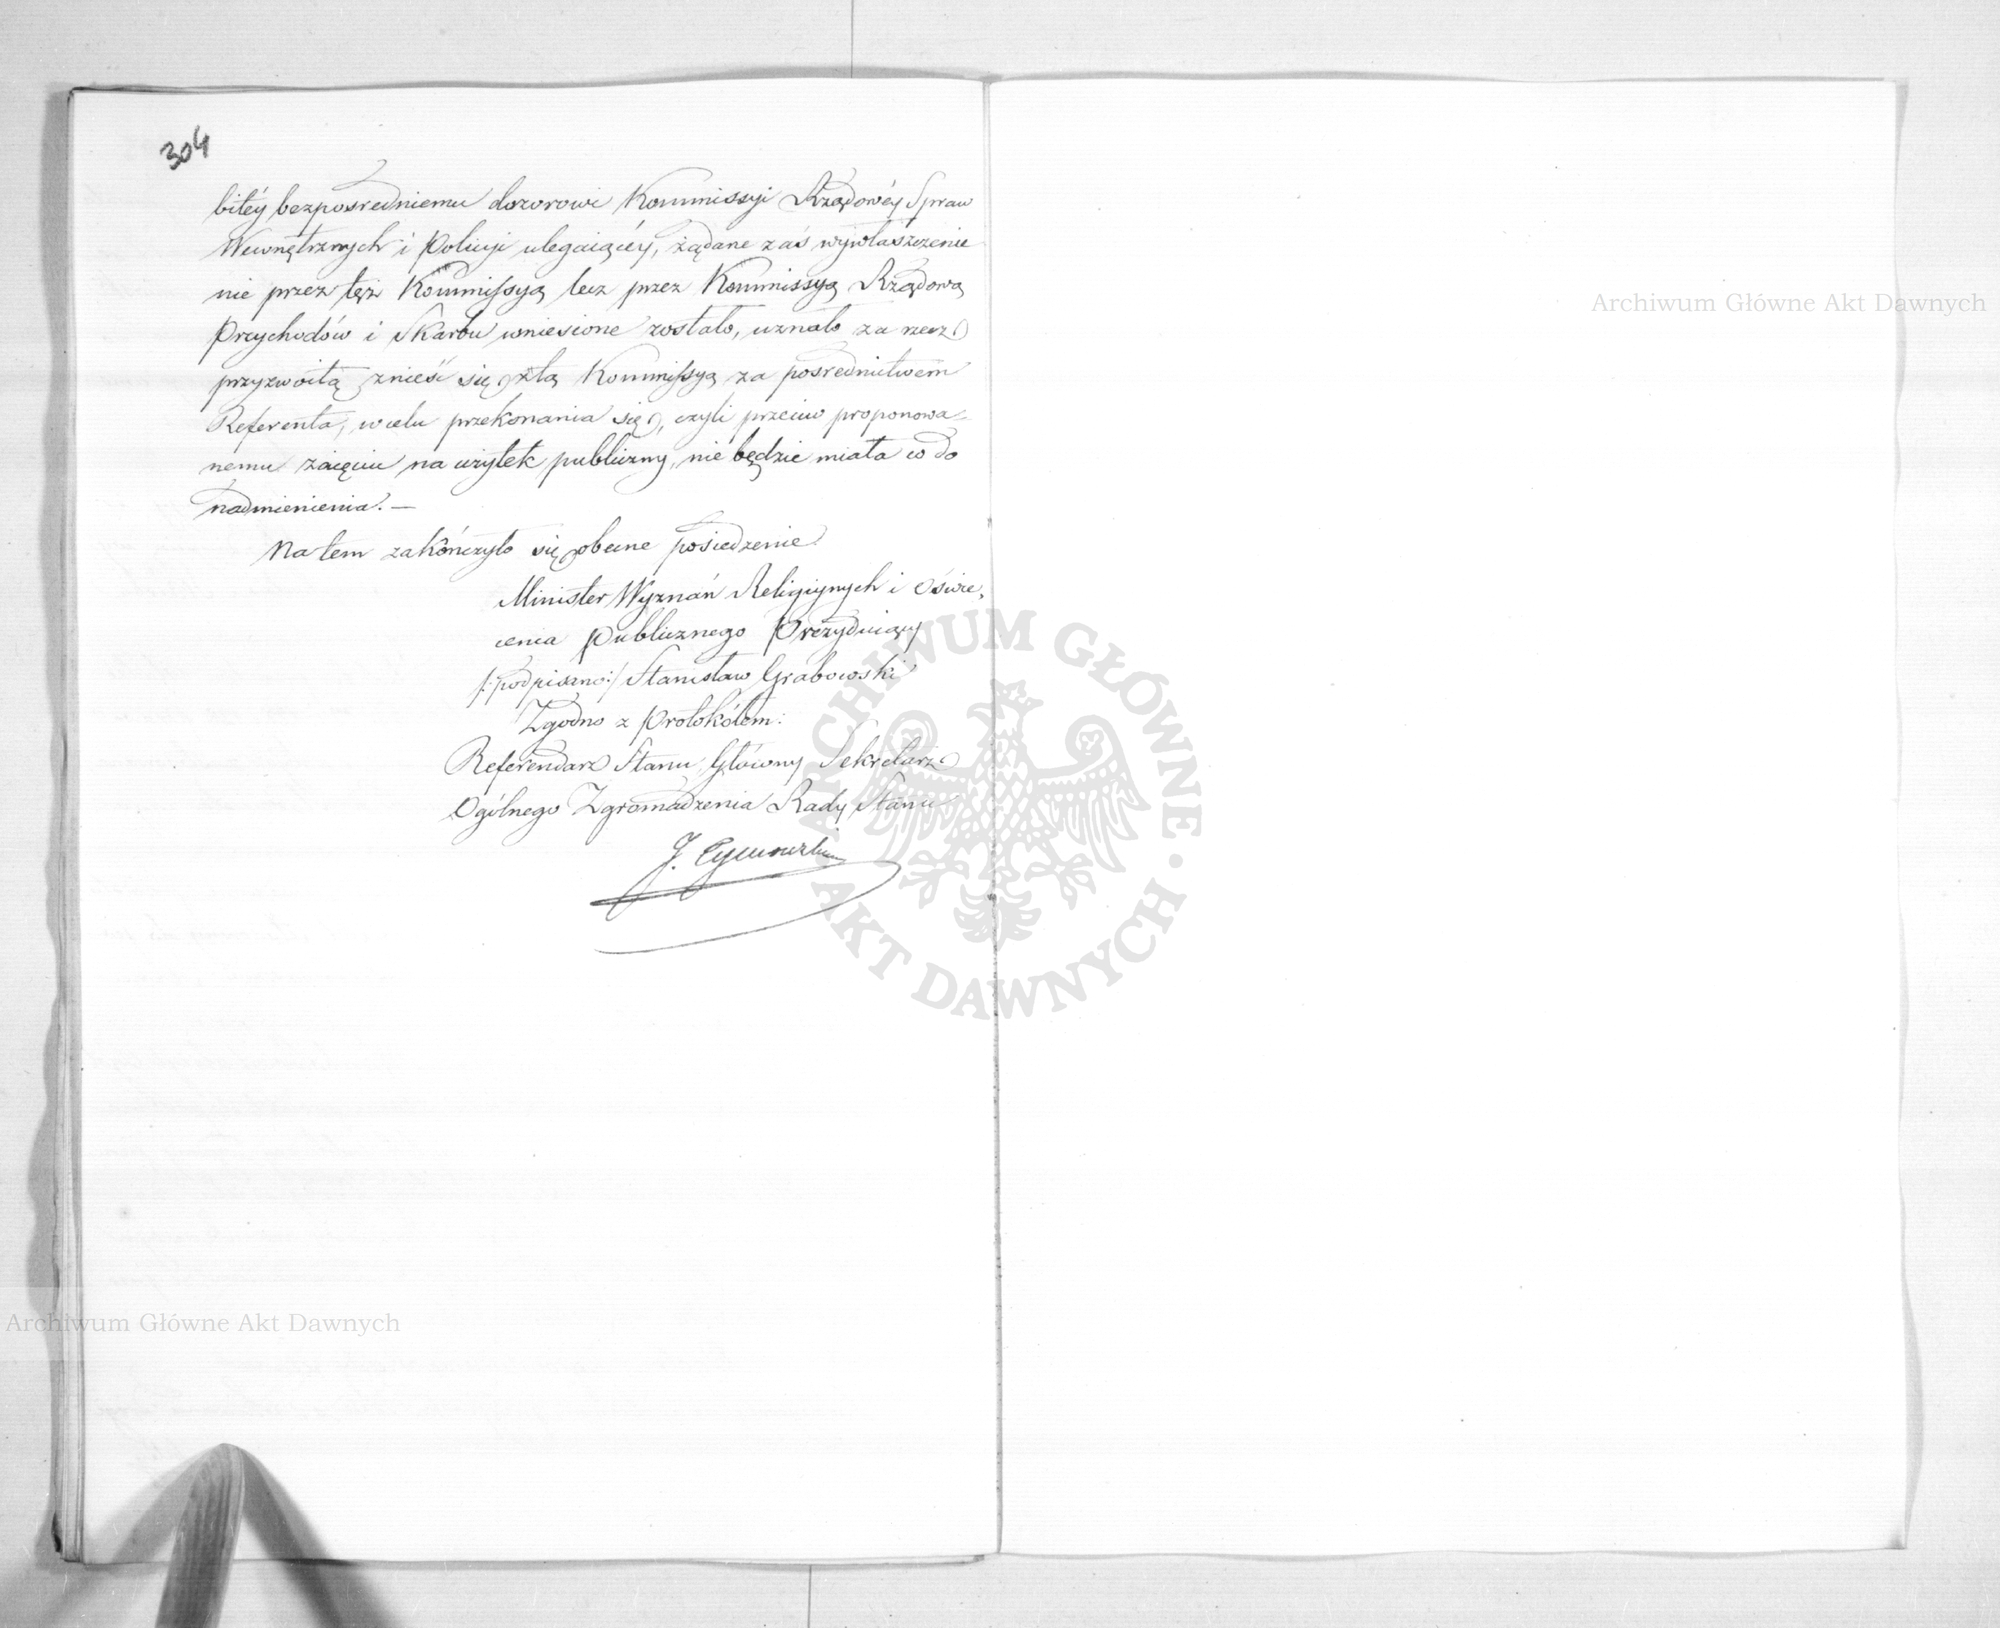 304
bitéy bezpośredniemu dozorowi Kommissyi Rządowéy Spraw
Wewnętrznych i Policyi ulegaiącéy, żądane zaś wywłaszczenie
nie przez tęż Kommissyą lecz przez Kommissyą Rządową
Przychodów i Skarbu wniesione zostało, uznało za rzecz
przyzwoitą znieść się z tą Kommissyą za pośrednictwem
Referenta, w celu przekonania się, czyli przeciw proponowa-
nemu zaięciu na użytek publiczny, nie będzie miała co do
nadmienienia. —
Na tem zakończyło się obecne posiedzenie
Minister Wyznań Religiynych i Oświe,
cenia Publicznego Prezyduiący
/:podpisano:/ Stanisław Grabowski
Zgodno z Protokółem:
Referendarz Stanu Główny Sekretarz
Ogólnego Zgromadzenia Rady Stanu
J.
Archiwum Główne Akt Dawnych
Archiwum Główne Akt Dawnych
ARCHIWUM GŁÓWNE
AKT DAWNYCH